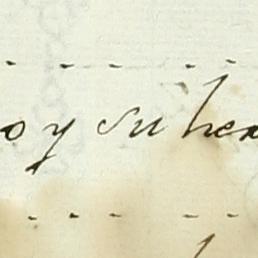 o y su her